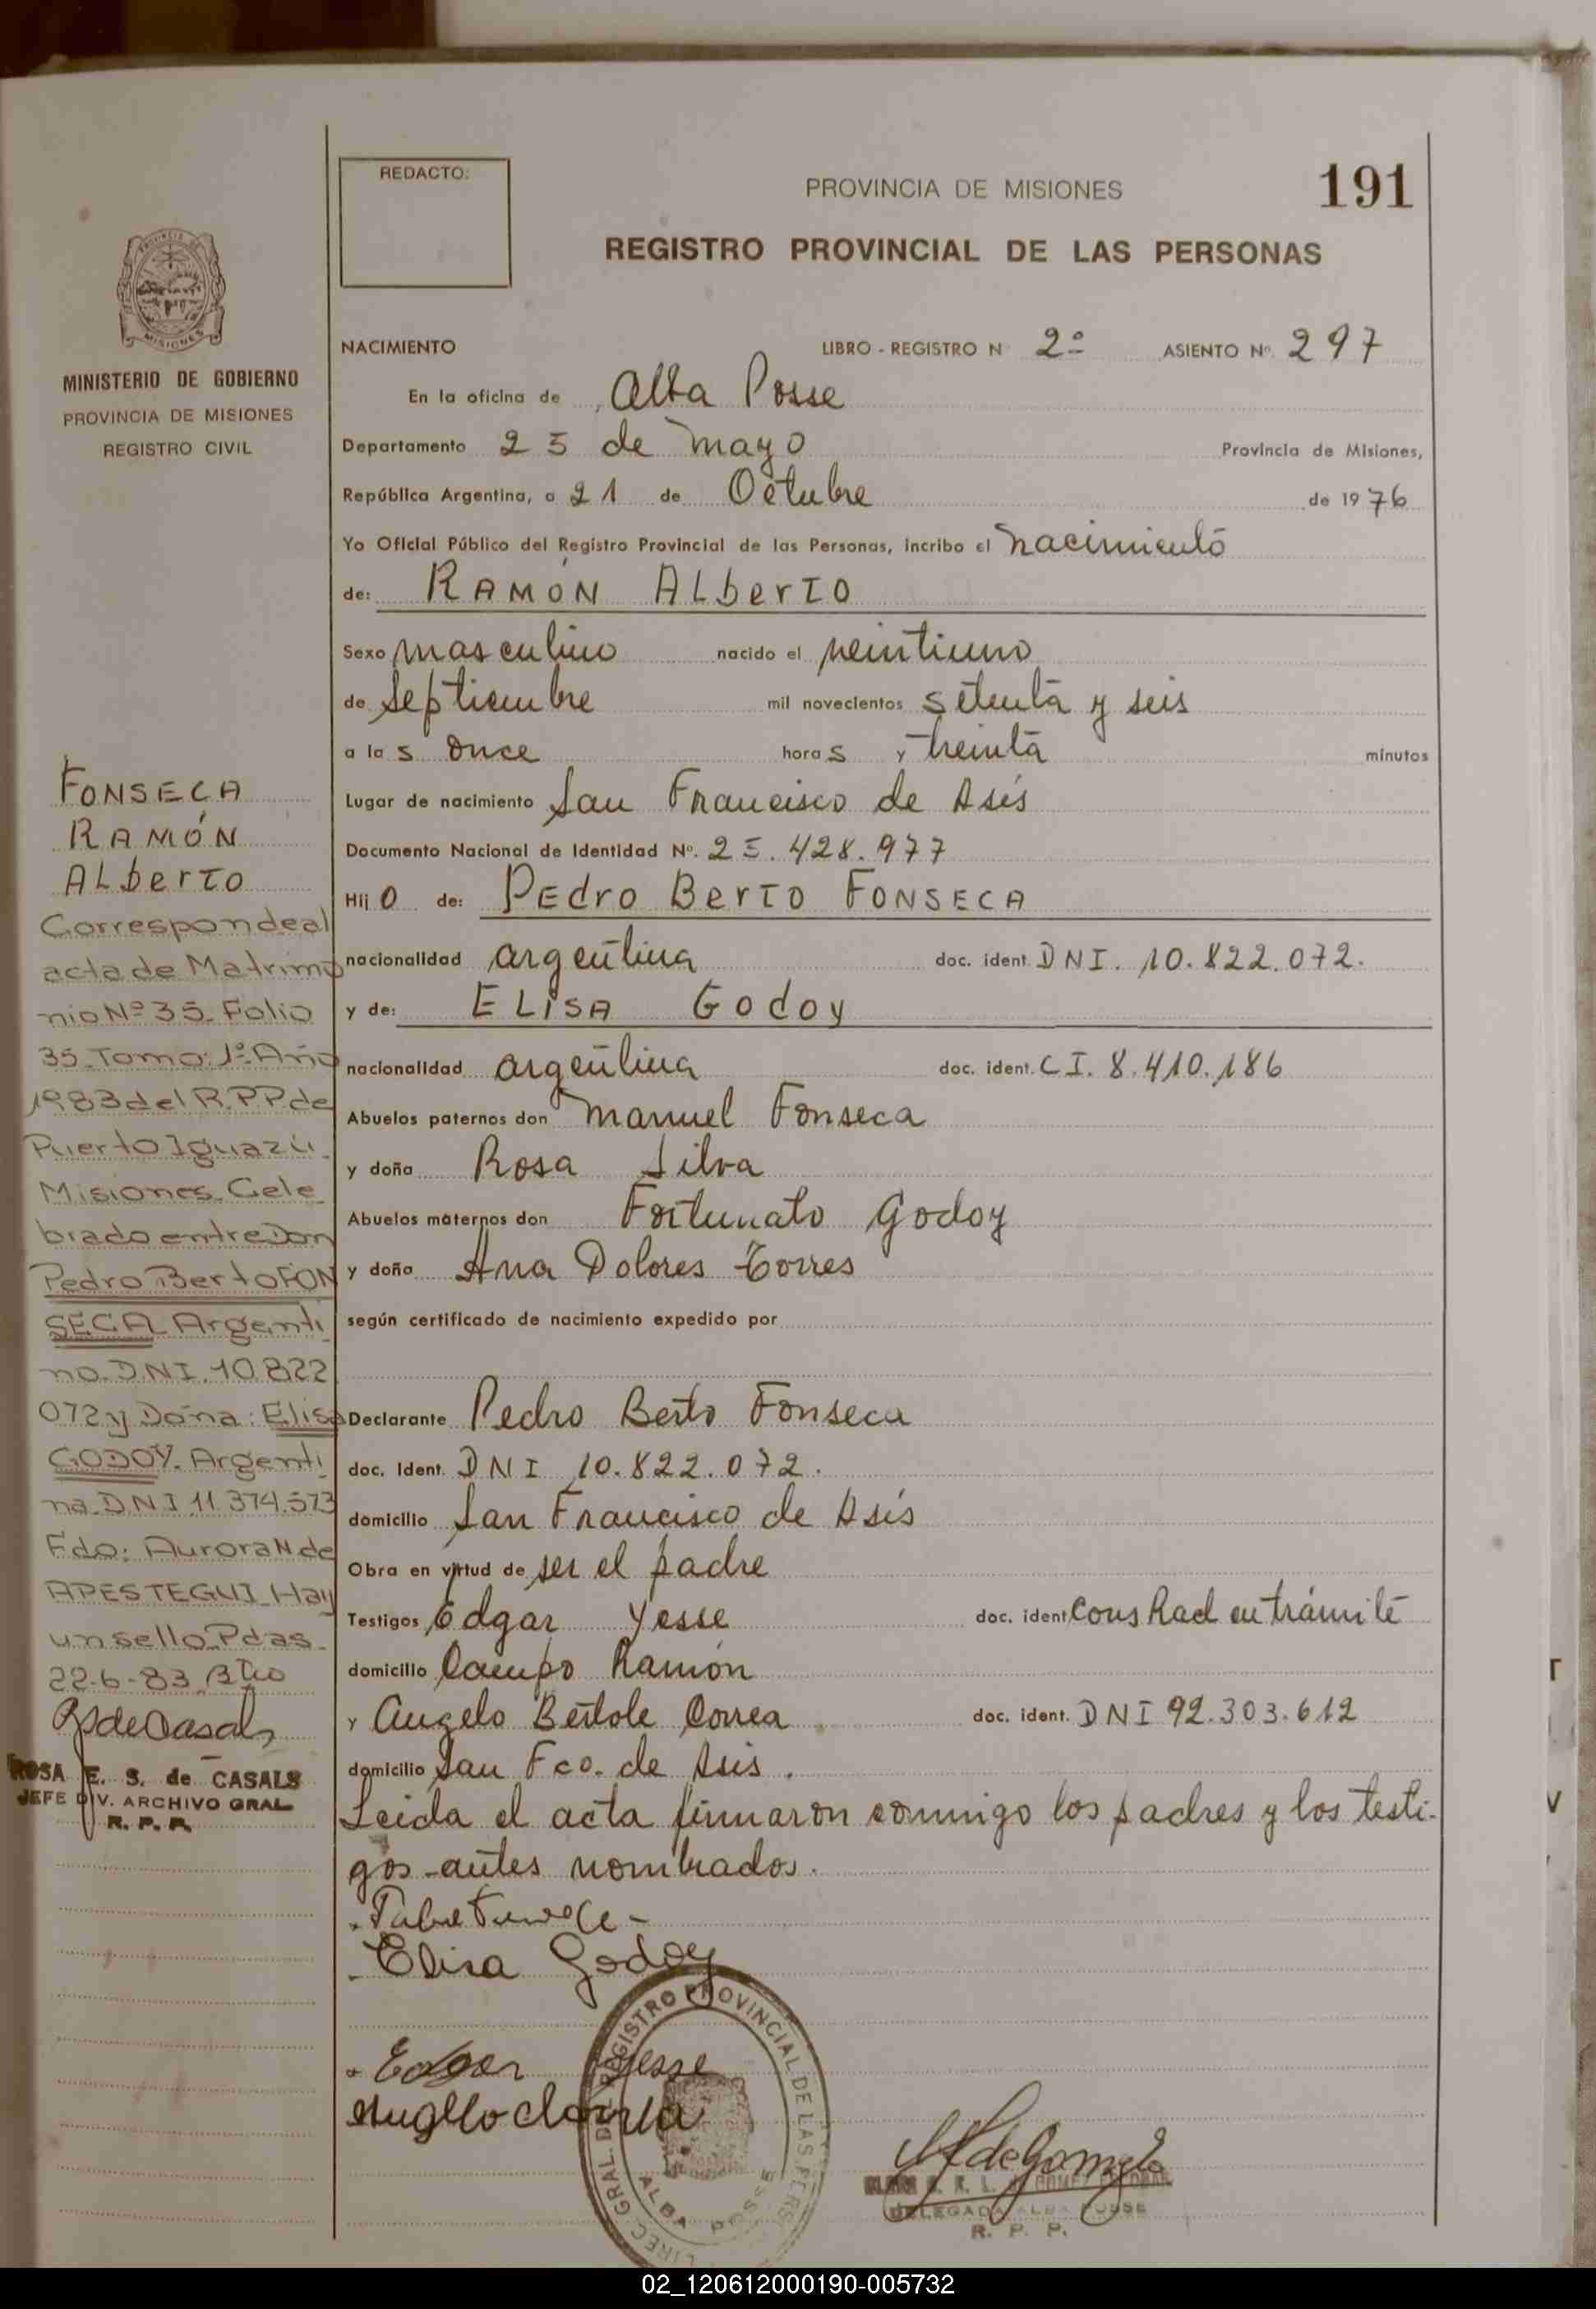 REDACTO:
PROVINCIA DE MISIONES
191
REGISTRO PROVINCIAL DE LAS PERSONAS
MISIONES
MINISTERIO DE GOBIERNO
PROVINCIA DE MISIONES
REGISTRO CIVIL
NACIMIENTO LIBRO - REGISTRO N 2º ASIENTO Nº. 297
En la oficina de Alba Posse
Departamento 25 de mayo Provincia de Misiones,
República Argentina, a 21 de Octubre de 1976
Yo Oficial Público del Registro Provincial de las Personas, incribo el nacimiento
de: RAMÓN ALberTO
Sexo masculino nacido el veintiuno
de septiembre mil novecientos setenta y seis
a las once horas y treinta minutos
Lugar de nacimiento San Francisco de Asís
Documento Nacional de Identidad Nº. 25.428.977
Hijo de: PEdro BerTO FONSECA
nacionalidad argentina doc. ident. DNI. 10.822.072.
y de: ELISA Godoy
nacionalidad argentina doc. ident. CI. 8.410.186
Abuelos paternos don Manuel Fonseca
y doña Rosa Silva
Abuelos maternos don Fortunato Godoy
y doña Ana Dolores Torres
según certificado de nacimiento expedido por
Declarante Pedro Berto Fonseca
doc. Ident. DNI 10.822.072.
domicilio San Francisco de Asís
Obra en virtud de ser el padre
Testigos Edgar Yesse doc. ident. Cons Rad en trámite
domicilio Campo Ramón
y Angelo Bertole Correa doc. ident. DNI 92.303.612
domicilio San Fco. de Asis.
Leida el acta firmaron conmigo los padres y los testi-
gos antes nombrados.
Elisa Godoy
Edgar Yesse
FONSECA
RAMÓN
ALberTO
Corresponde al
acta de Matrimo
nio Nº 35. Folio
35. Tomo: 1º. Año
1983 del R.P.P de
Puerto Iguazú.
Misiones. Cele
brado entre Don
Pedro Berto FON
SECA Argenti
no. D.N.I. 10.822
072 y Doña: Elisa
GODOY. Argenti
na. D.N.I 11.374.573
Fdo: Aurora N de
APESTEGUI. Hay
un sello. Pdas.
22-6-83
ROSA E. S. de CASALS
JEFE DIV. ARCHIVO GRAL
R. P. P.
DIREC. GRAL. DEL REGISTRO PROVINCIAL DE LAS PERS
ALBA POSSE
DELEGADA ALBA POSSE
R. P. P.
02_120612000190-005732